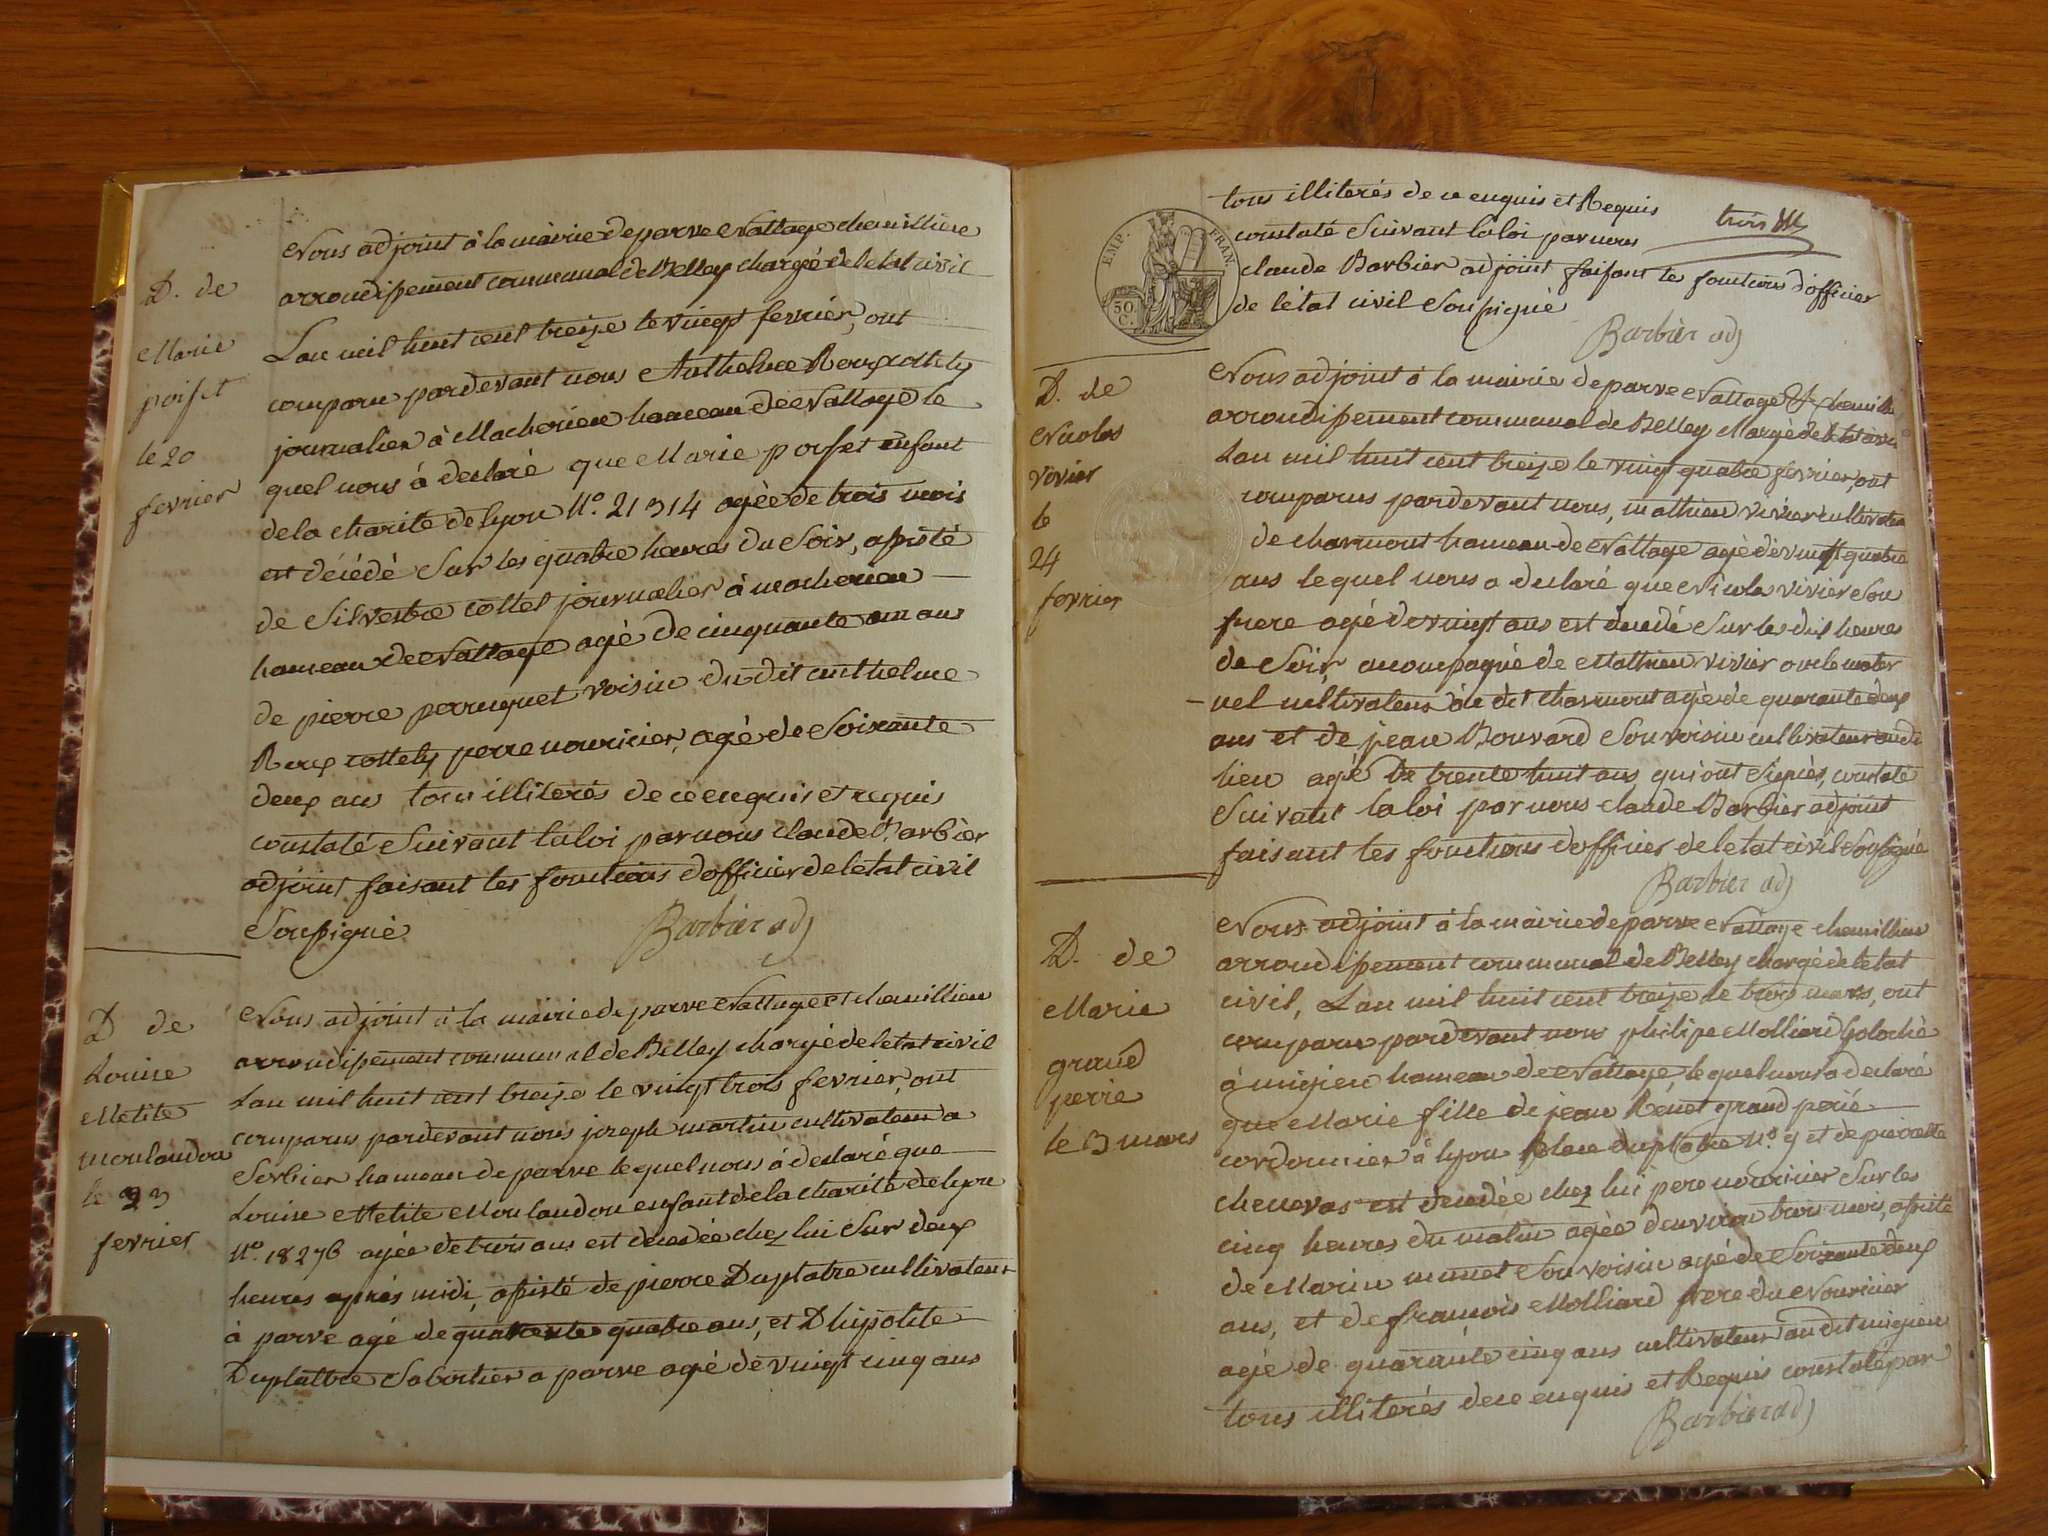 D. de
Marie
poiset
le 20
fevrier
Nous adjoint à la mairie de parve Nattage chemilliene
arrondissement communal de Belley chargé de letat civil
Lan mil huit cent treize le vingt fevrier, ont
comparu pardevant nous Anthelme Roux
journalier à Macherieu hameau de Nattage le
quel nous à declaré que Marie poiset enfant
de la charité de lyon N.o 21314 agée de trois mois
est décédé Sur les quatre heures du Soir, assisté
de Silvestre Collet journalier à macherieu
hameau de Nattage agé de cinquante un ans
de pierre perruquet voisin du dit anthelme
Roux perre nouricier, agé de Soixante
deux ans tous illiterés de ce enquis et requis
constaté Suivant la loi par nous claude Barbier
adjoint faisant les fonctions dofficier de letat civil
Soussigné
Barbier adj
D de
Louise
Metite
Moulandou
le 23
fevrier
Nous adjoint à la mairie de parve Nattage et chemillieu
arrondissement communal de Belley chargé de letat civil
Lan mil huit cent treize le vingt trois fevrier, ont
comparus pardevant nous joseph martin cultivateur a
Sorbier hameau de parve lequel nous à declaré que
Louise Metite Moulandou enfant de la charité de lyon
N.o 18276 agée de trois ans est decedée chez lui Sur deux
heures aprés midi, assisté de pierre Duplatre cultivateur
à parve agé de quarente quatre ans, et Dhipolite
Duplattre Sabottier a parve agé de vingt cinq ans
tous illiterés de ce enquis et Requis
trois
constaté Suivant la loi par nous
EMP. FRAN.
50 C.
claude Barbier adjoint faisant les fonctions d'officier
de létat civil Soussigné
Barbier adj
D. de
Nicolas
vivier
le
24
fevrier
Nous adjoint à la mairie de parve Nattage & chemillie
arrondissement communal de Belley chargé de letat civil
Lan mil huit cent treize le vingt quatre fevrier, ont
comparus pardevant nous, mathieu vivier cultivateur
de charmont hameau de Nattage agé de vingt quatre
ans lequel nous a declaré que Nicolas vivier Son
frere agé de vingt ans est decedé Sur les dix heures
de Soir, accompagné de Mathieu vivier oncle mater
- nel cultivateur du dit charmont agé de quarante deux
ans et de jean Bouvard Son voisin cultivateur au dit
lieu agé De trente huit ans qui ont Signés, constaté
Suivant la loi par nous claude Barbier adjoint
faisant les fonctions dofficier de letat civil Soussigné
Barbier adj
D. de
Marie
grand
perré
le 3 mars
Nous adjoint à la mairie de parve Nattage chemillieu
arrondissement communal de Belley chargé de letat
civil, Lan mil huit cent treize le trois mars, ont
comparus pardevant nous philipe Molliard
à migieu hameau de Nattage, lequel nous a declaré
que Marie fille de jean Renet grand perré
cordonnier à lyon place duplatre N.o 9 et de pierrette
chenevas est decedée chez lui pere nouricier Sur les
cinq heures du matin agée d'environ trois mois, assisté
de Marin munet Son voisin agé de Soixante deux
ans, et de francois Molliard frere du Nouricier
agé de quarante cinq ans cultivateur au dit migieu
tous illiterés de ce enquis et Requis constaté par
Barbier adj